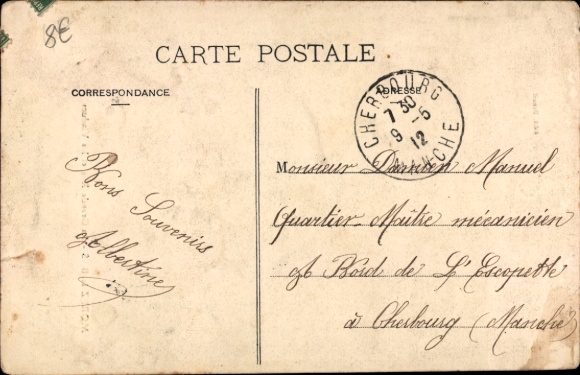 8€
CARTE POSTALE
CORRESPONDANCE
ADRESSE
CHERBOURG
7 30
9 - 5
12
MANCHE
Bons Souvenirs
Albertine
Monsieur Damien Manuel
Quartier-Maître mécanicien
A Bord de L'Escopette
à Cherbourg (Manche)